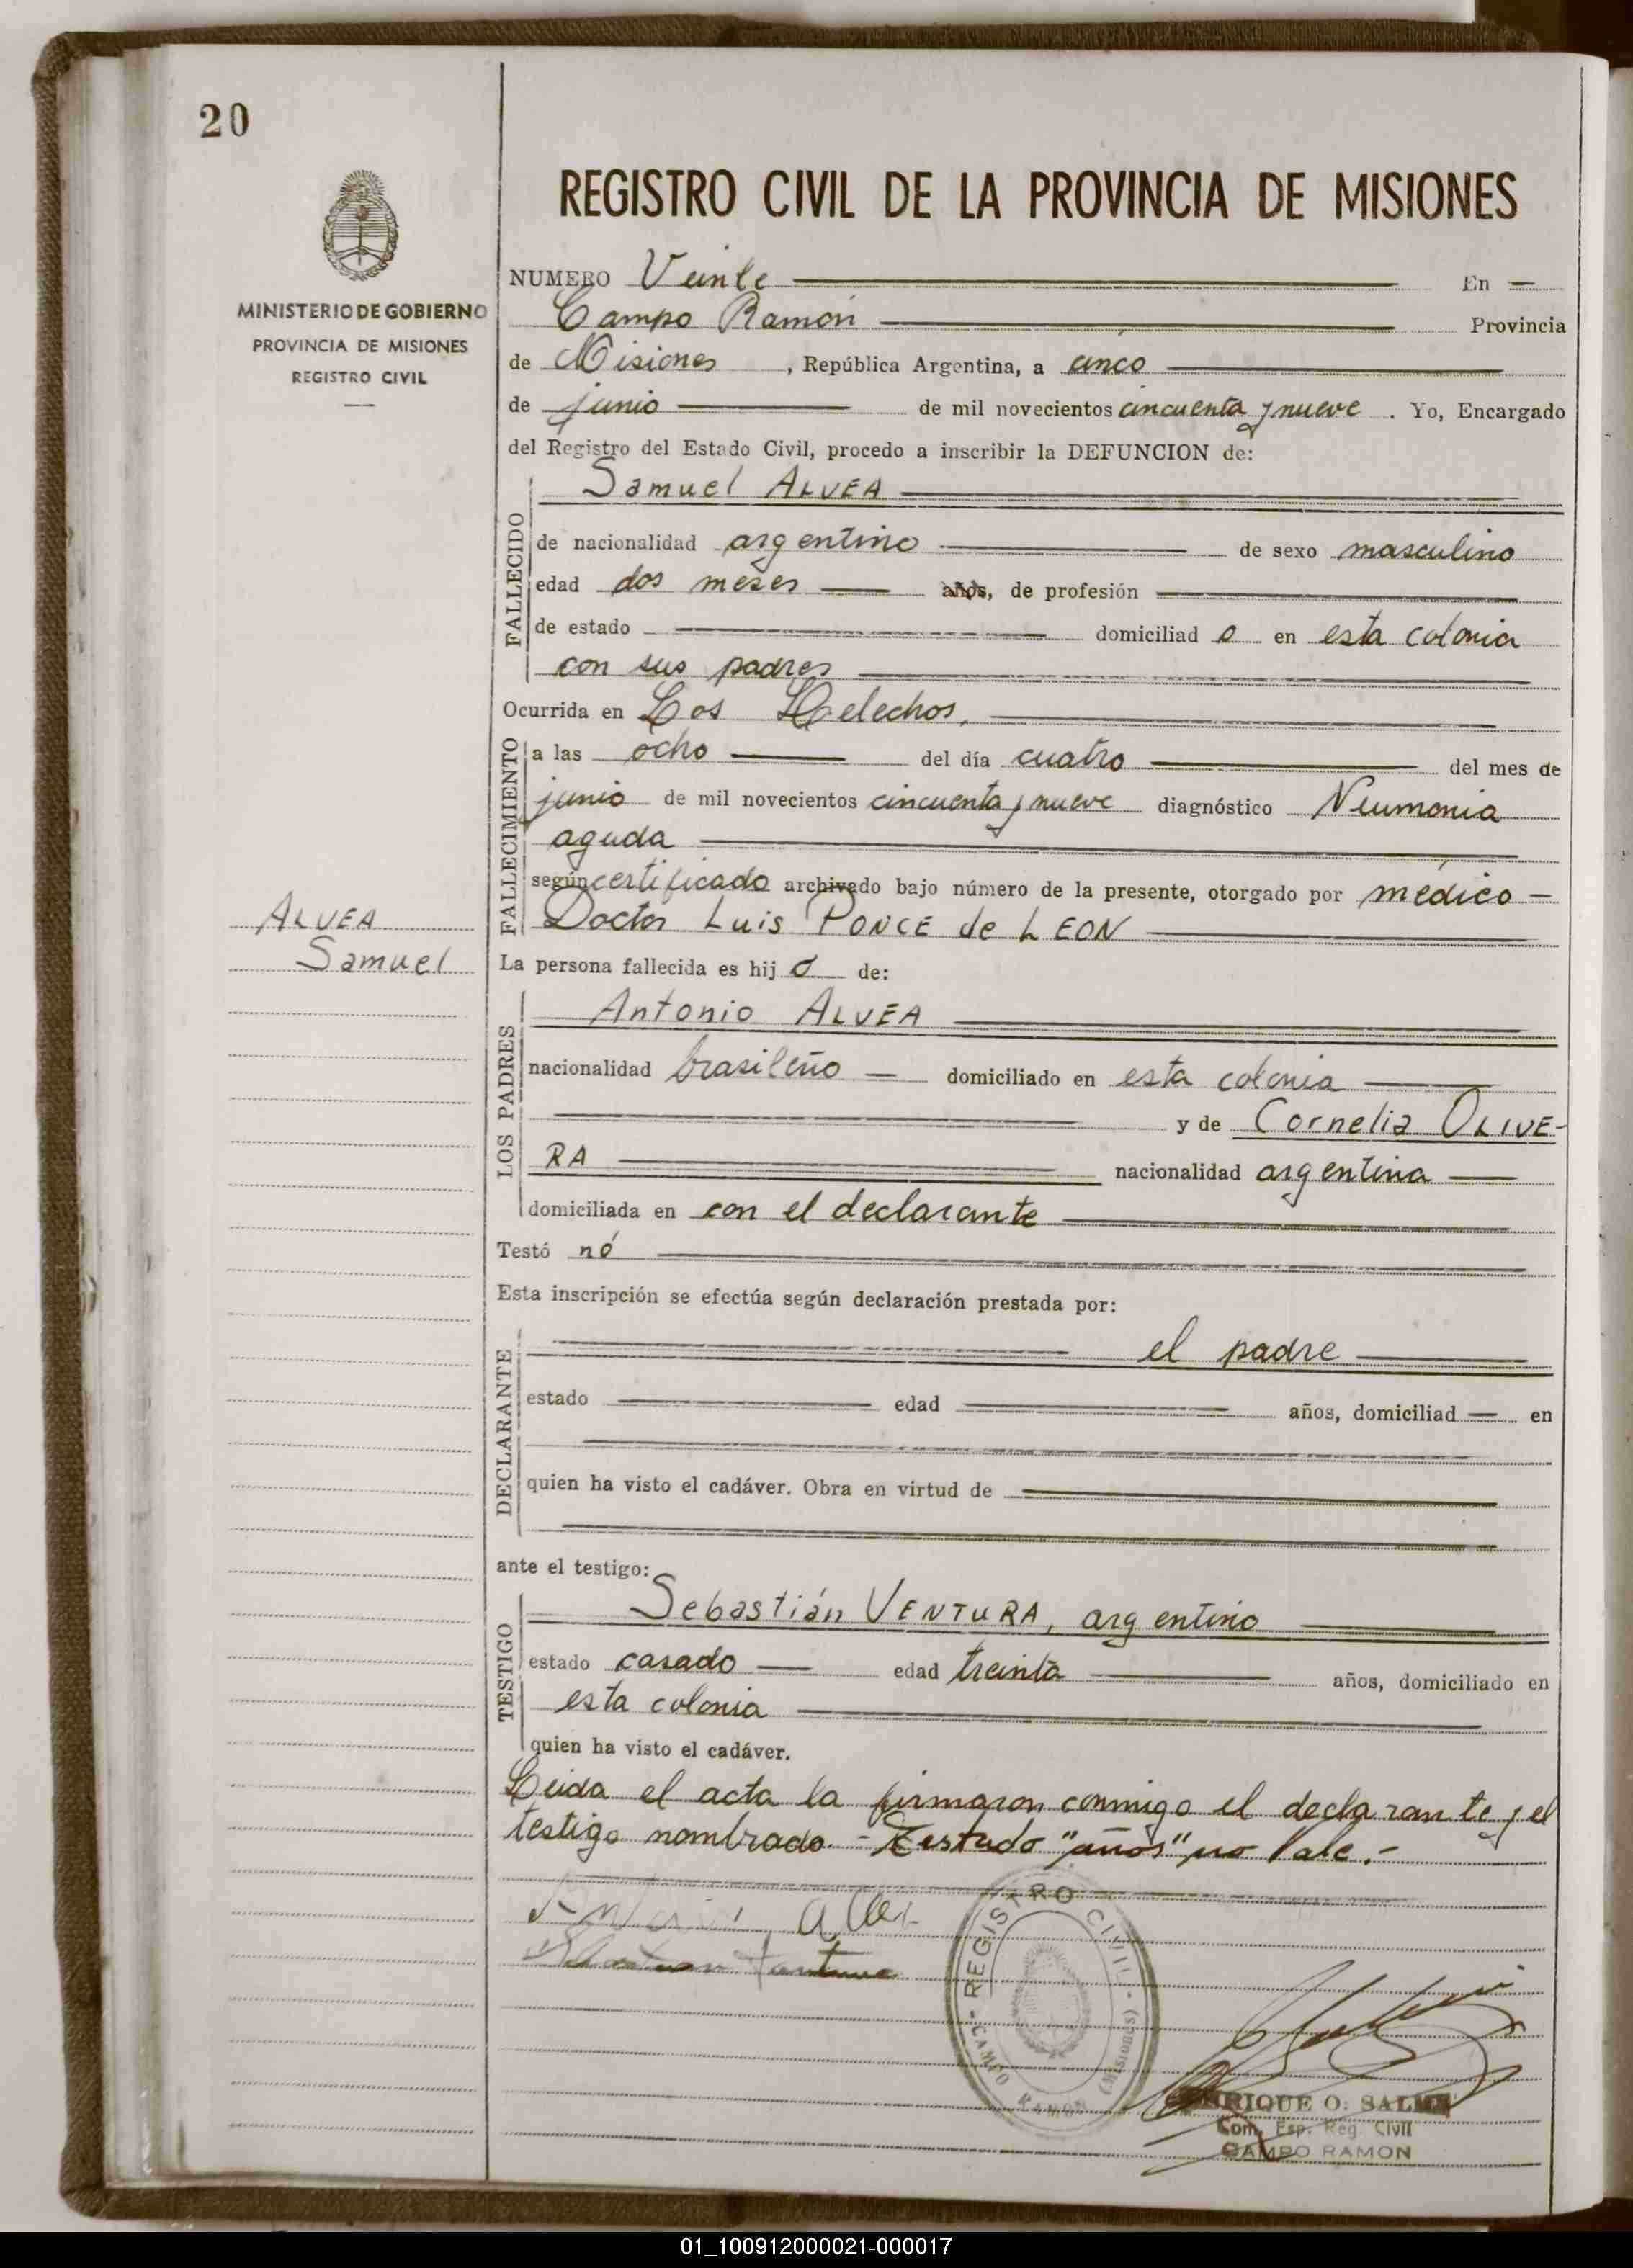 20
REGISTRO CIVIL DE LA PROVINCIA DE MISIONES
MINISTERIO DE GOBIERNO
PROVINCIA DE MISIONES
REGISTRO CIVIL
NUMERO Veinte En
Campo Ramón Provincia
de Misiones , República Argentina, a cinco
de junio de mil novecientos cincuenta y nueve . Yo, Encargado
del Registro del Estado Civil, procedo a inscribir la DEFUNCION de:
FALLECIDO
Samuel ALVEA
de nacionalidad argentino de sexo masculino
edad dos meses años, de profesión
de estado domiciliad o en esta colonia
con sus padres
Ocurrida en Los Helechos,
FALLECIMIENTO
a las ocho del día cuatro del mes de
junio de mil novecientos cincuenta y nueve diagnóstico Neumonia
aguda
según certificado archivado bajo número de la presente, otorgado por médico
Doctor Luis PONCE de LEON
ALVEA
Samuel
La persona fallecida es hij o de:
LOS PADRES
Antonio ALVEA
nacionalidad brasileño domiciliado en esta colonia
y de Cornelia OLIVE-
RA nacionalidad argentina
domiciliada en con el declarante
Testó nó
Esta inscripción se efectúa según declaración prestada por:
DECLARANTE
el padre
estado edad años, domiciliad en
quien ha visto el cadáver. Obra en virtud de
ante el testigo:
TESTIGO
Sebastián VENTURA, argentino
estado casado edad treinta años, domiciliado en
esta colonia
quien ha visto el cadáver.
Leida el acta la firmaron conmigo el declarante y el
testigo nombrado.- Testado "años" no vale.-
REGISTRO CIVIL
CAMPO RAMON (Misiones)
ENRIQUE O.
Com. Esp. Reg. Civil
CAMPO RAMON
01_100912000021-000017